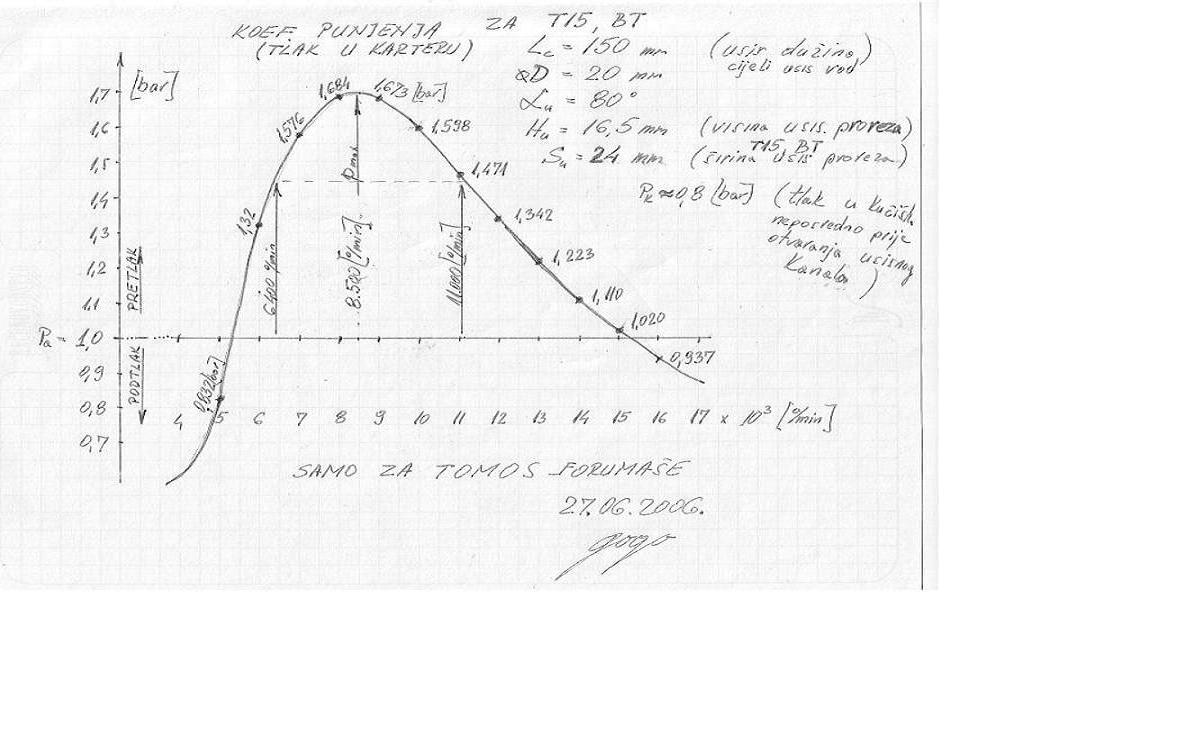 KOEF. PUNJENJA ZA T15, BT
(TLAK U KARTERU)
Lc = 150 mm (usis dužina)
cijeli usis vod
ØD = 20 mm
αu = 80°
Hu = 16,5 mm (visina usis. proreza)
T15, BT
Su = 24 mm (širina usis proreza)
Pk ≈ 0,8 [bar] (tlak u kućišt.
neposredno prije
otvaranja usisnog
kanala)
[bar]
1,7
1,6
1,5
1,4
1,3
1,2
1,1
Pa = 1,0
0,9
0,8
0,7
PRETLAK
PODTLAK
0,832 [bar]
1,32
1,576
1,684
1,673 [bar]
1,598
1,471
1,342
1,223
1,110
1,020
0,937
6400 °/min
Pmax
8.500 [°/min]
11.000 [°/min]
4 5 6 7 8 9 10 11 12 13 14 15 16 17 x 10³ [°/min]
SAMO ZA TOMOS FORUMAŠE
27.06.2006.
gogo